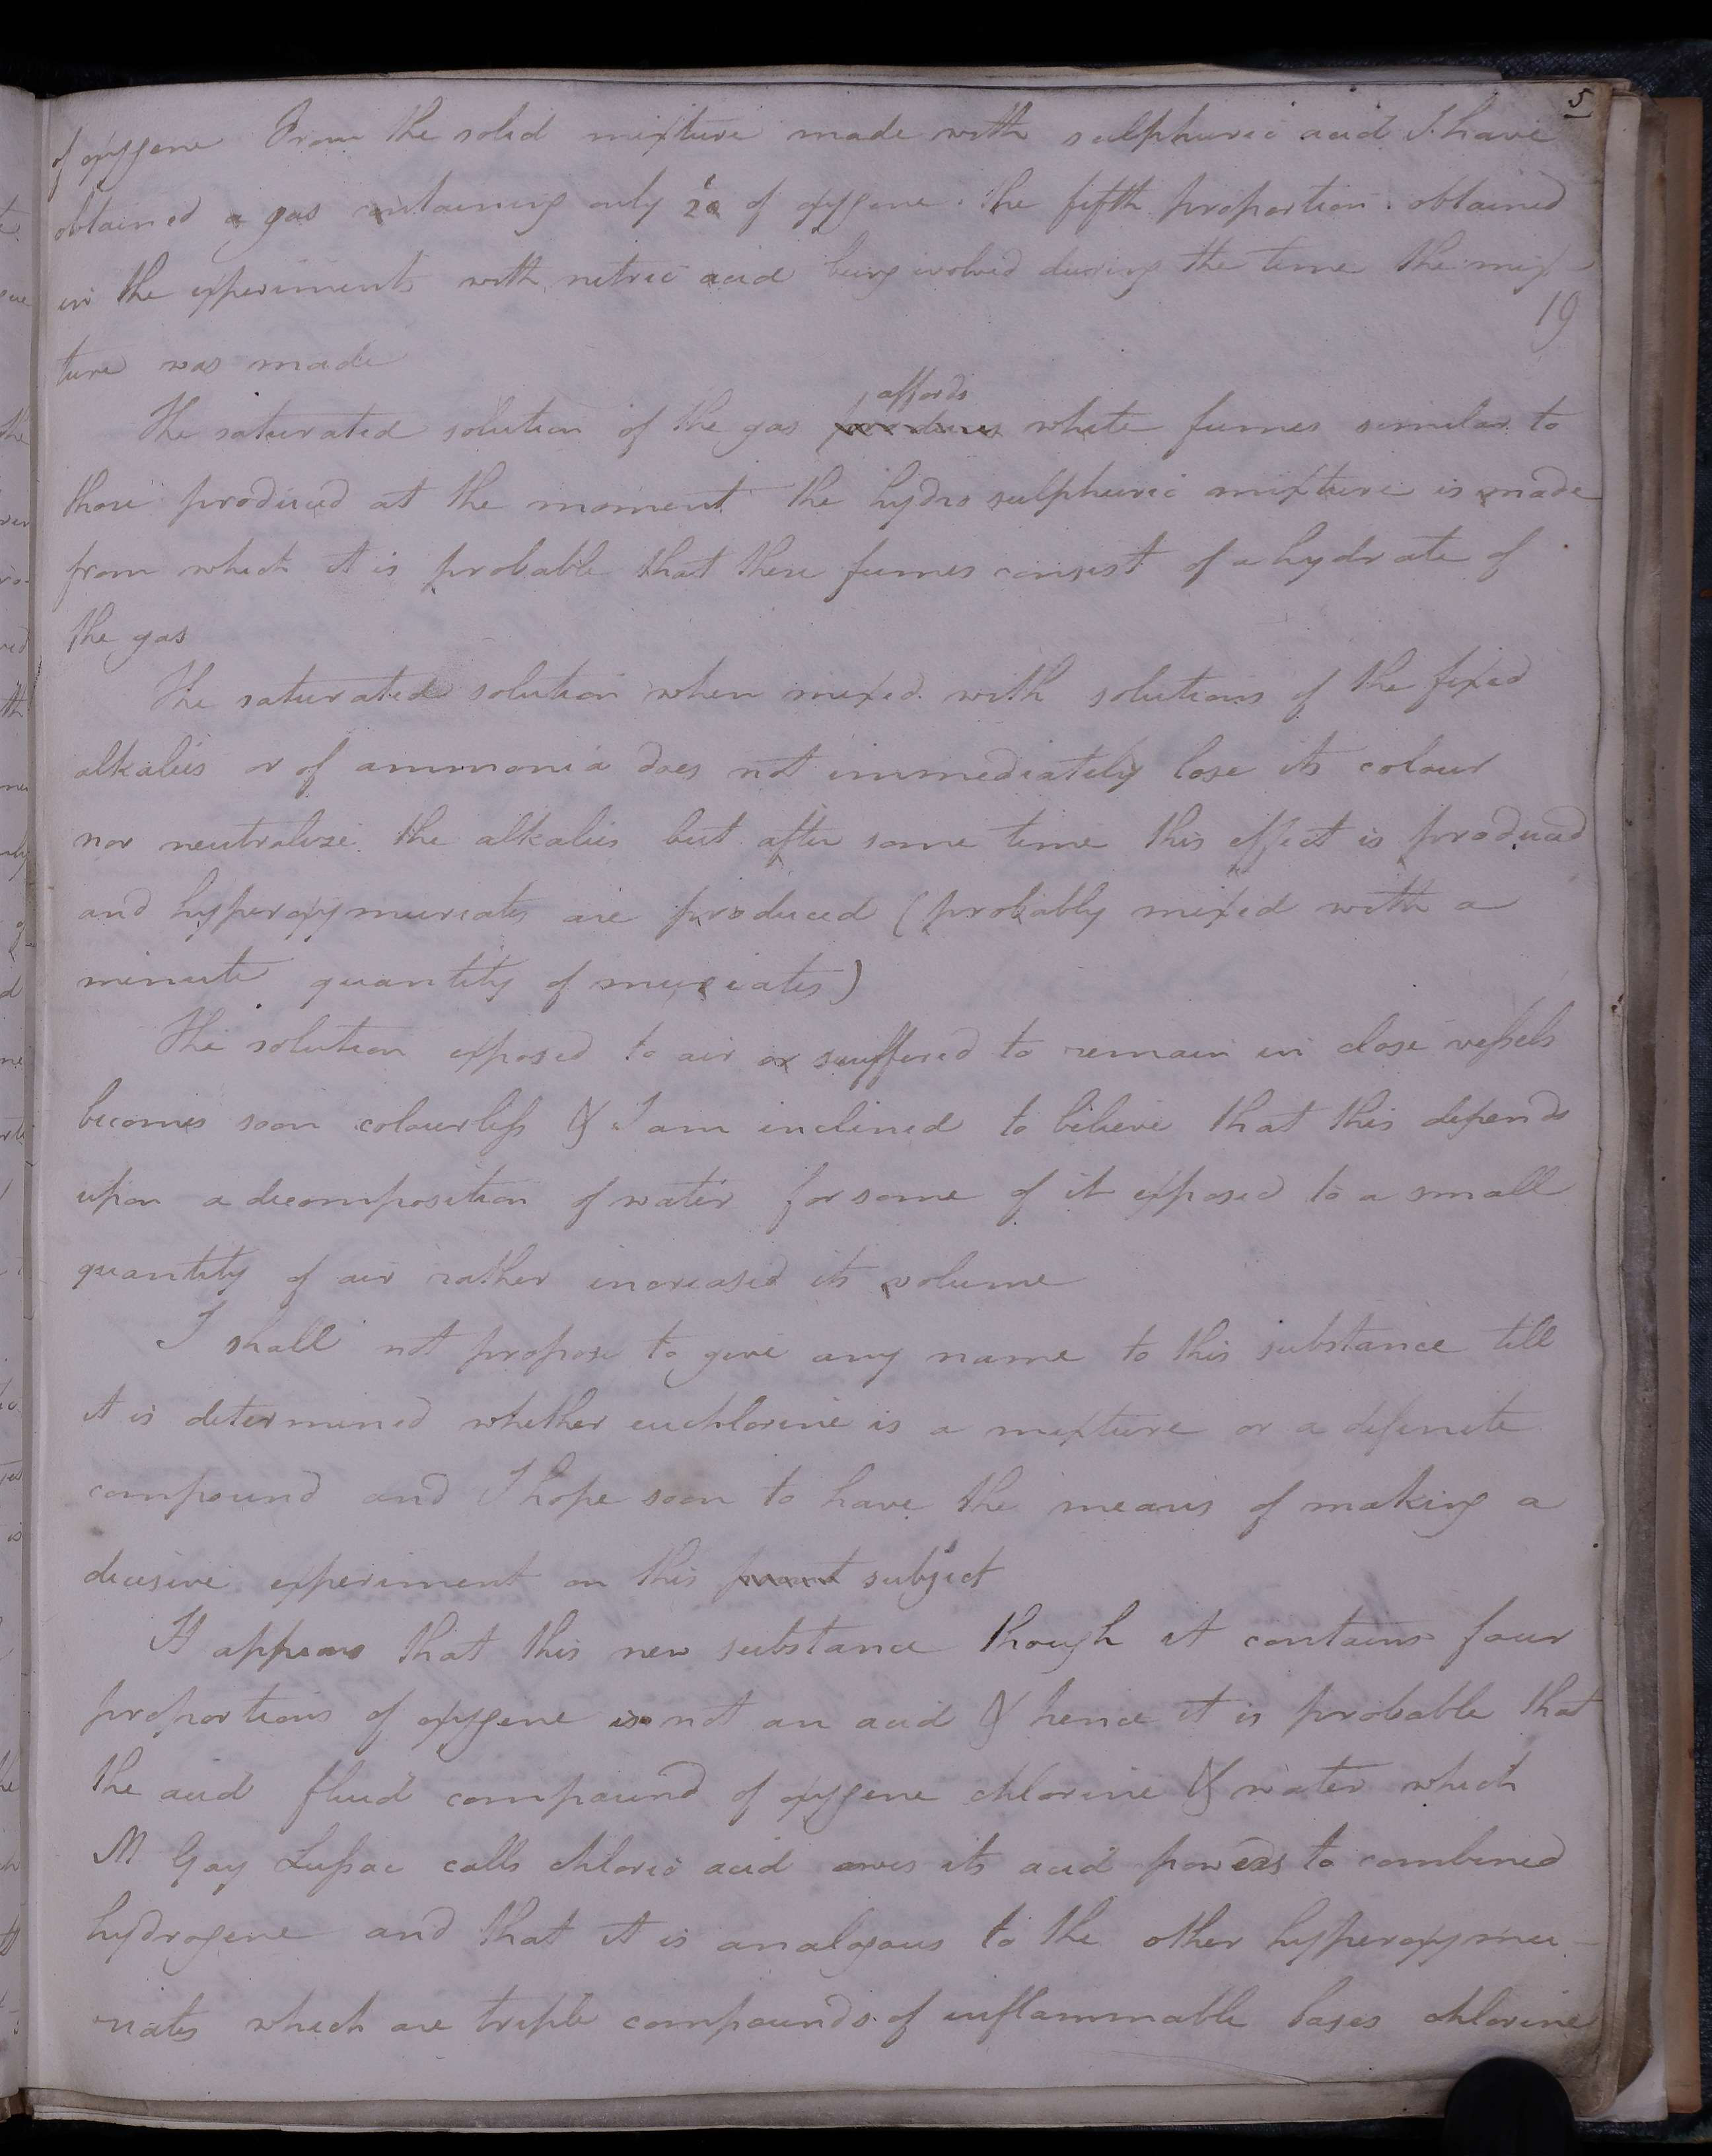 5
of oxygene From the solid mixture made with sulphuric acid I have
obtained a gas containing only 2 of oxygene. the fifth proportion. obtained
in the experiments with nitric acid being evolved during the time the mix
19
ture was made
affords
The saturated solution of the gas produces white fumes similar to
those produced at the moment the hydro sulphuric mixture is made
from which it is probable that these fumes consist of a hydrate of
the gas
The saturated solution when mixed with solutions of the fixed
alkalies or of ammonia does not immediately lose its colour
nor neutralize the alkalies but after some time this effect is produced
and hyperoxymuriates are produced (probably mixed with a
minute quantity of muriates)
The solution exposed to air or suffered to remain in close vessels
becomes soon colourless & I am inclined to believe that this depends
upon a decomposition of water for some of it exposed to a small
quantity of air rather increased its volume
I shall not propose to give any name to this substance till
it is determined whether euchlorine is a mixture or a definite
compound and I hope soon to have the means of making a
decisive experiment on this subject
It appears that this new substance though it contains four
proportions of oxygene is not an acid & hence it is probable that
the acid fluid compound of oxygene chlorine & water which
M Gay Lussac calls chloric acid owes its acid powers to combined
hydrogene and that it is analogous to the other hyperoxymu-
riates which are triple compounds of inflammable bases chlorine